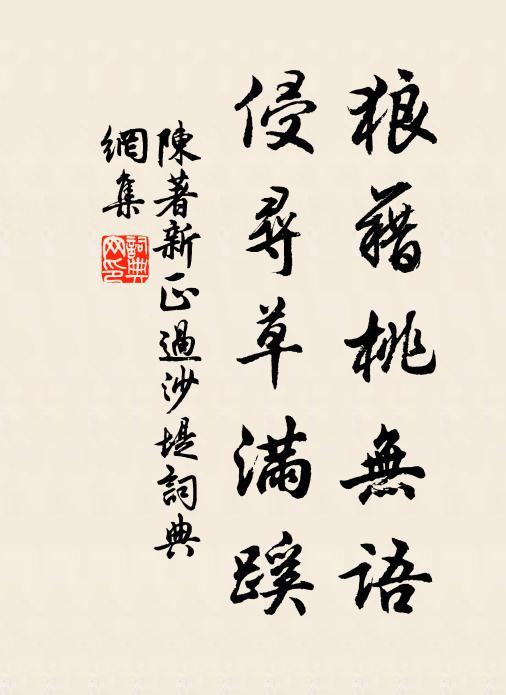 狼藉桃無語
侵尋草滿蹊
陳著新正過沙堤詞典
網集
詞典
网印